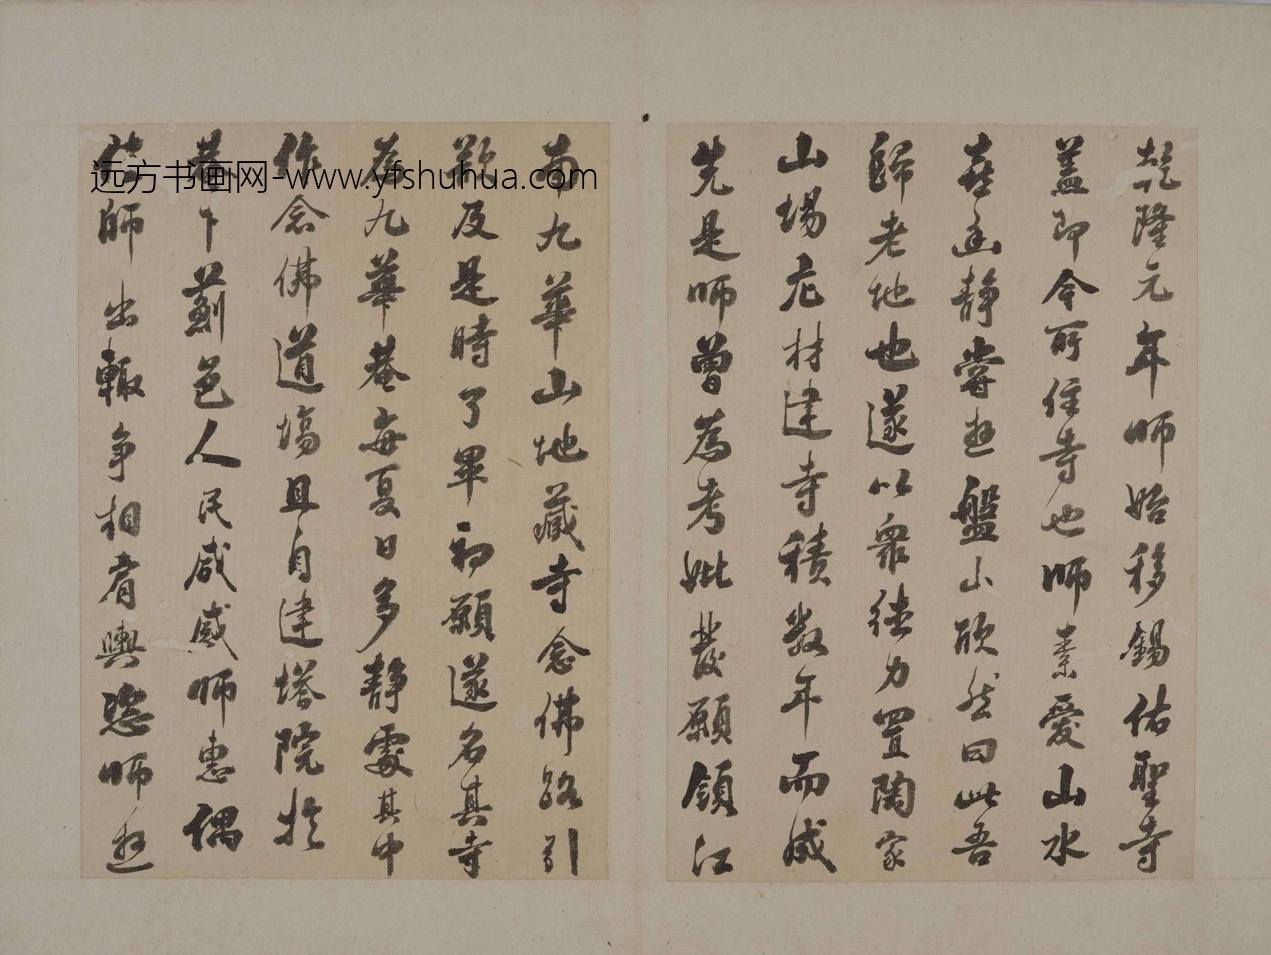 乾隆元年師始移錫佑聖寺
蓋即今所住寺也師素愛山水
喜幽静嘗遊盤山欣然曰此吾
歸老地也遂以衆德力置陶家
山場庀材建寺積数年而成
先是師曾爲考妣發願領江
南九華山地藏寺念佛路引
歉及是時了畢初願遂名其寺
爲九華菴每夏日多静處其中
作念佛道場且自建塔院於
菴下薊邑人民咸感師惠偶
值師出輙争相肩輿恣師遊
远方书画网-www.yfshuhua.com